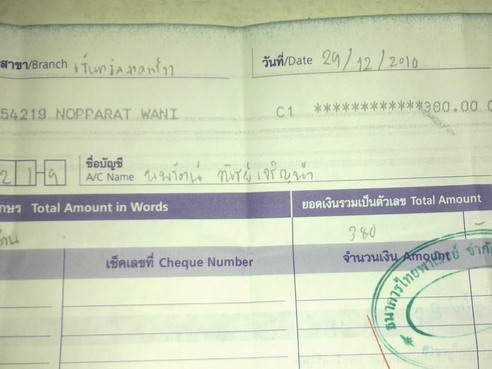 สาขา/Branch เซ็นทรัลลาดพร้าว วันที่/Date 29/12/2010
54219 NOPPARAT WANI C1 ************380.00
2 1-9 ชื่อบัญชี
A/C Name นพรัตน์
กษร Total Amount in Words ยอดเงินรวมเป็นตัวเลข Total Amount
380
เช็คเลขที่ Cheque Number จำนวนเงิน Amount
ธนาคารไทยพาณิชย์ จำกัด